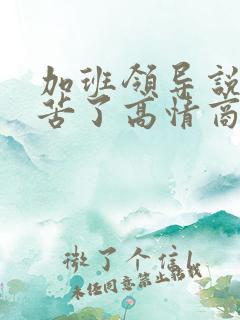 加班领导说
苦了高情商
微了个信
未经同意禁止转载